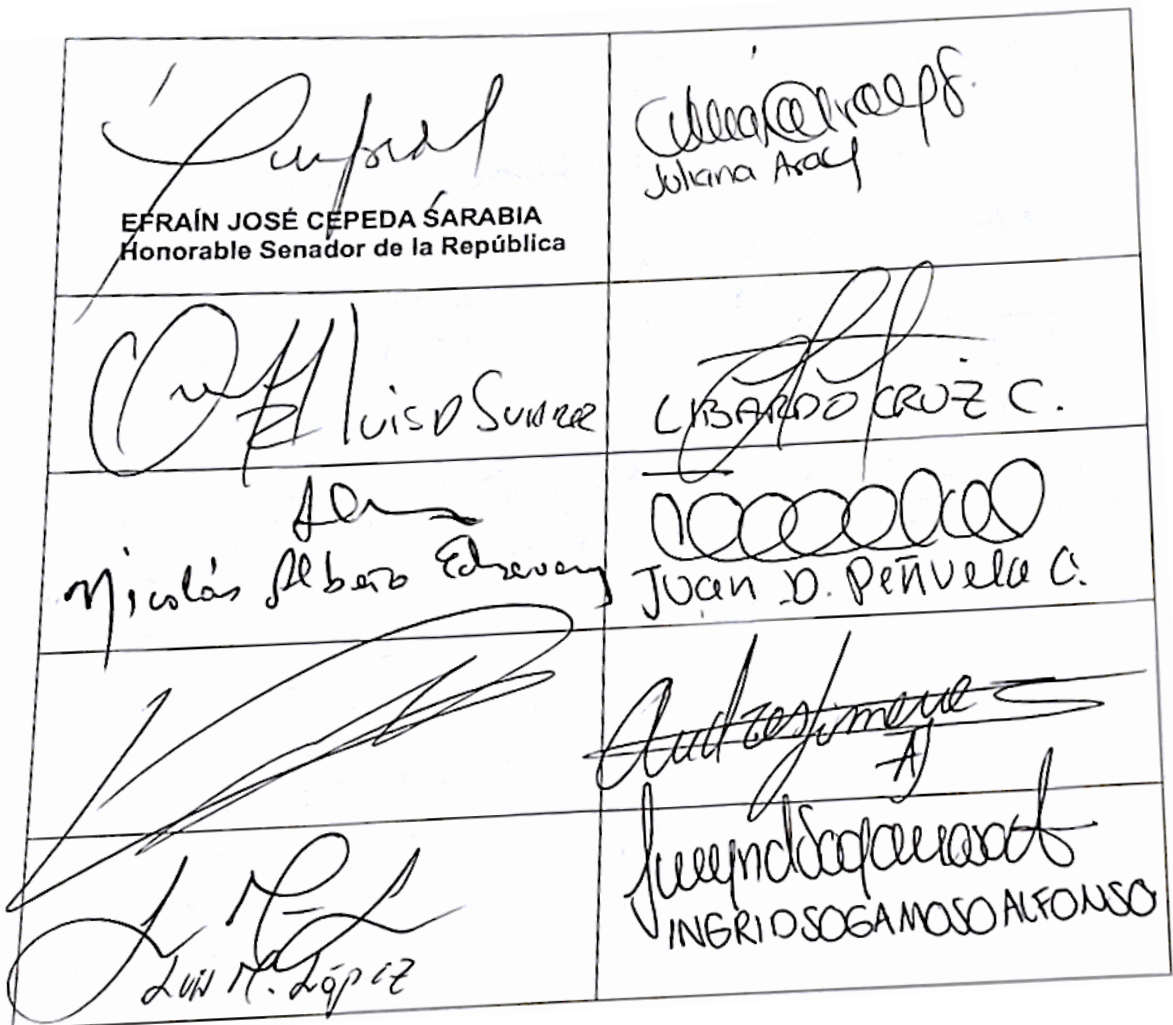 EFRAÍN JOSÉ CEPEDA SARABIA
Honorable Senador de la República
Juliana Aray
Luis D Suarez
LIBARDO CRUZ C.
Nicolás Albeiro Echeverry
Juan D. Peñuela C.
Andres Jimene
AJ
Luis M. López
INGRID SOGAMOSO ALFONSO